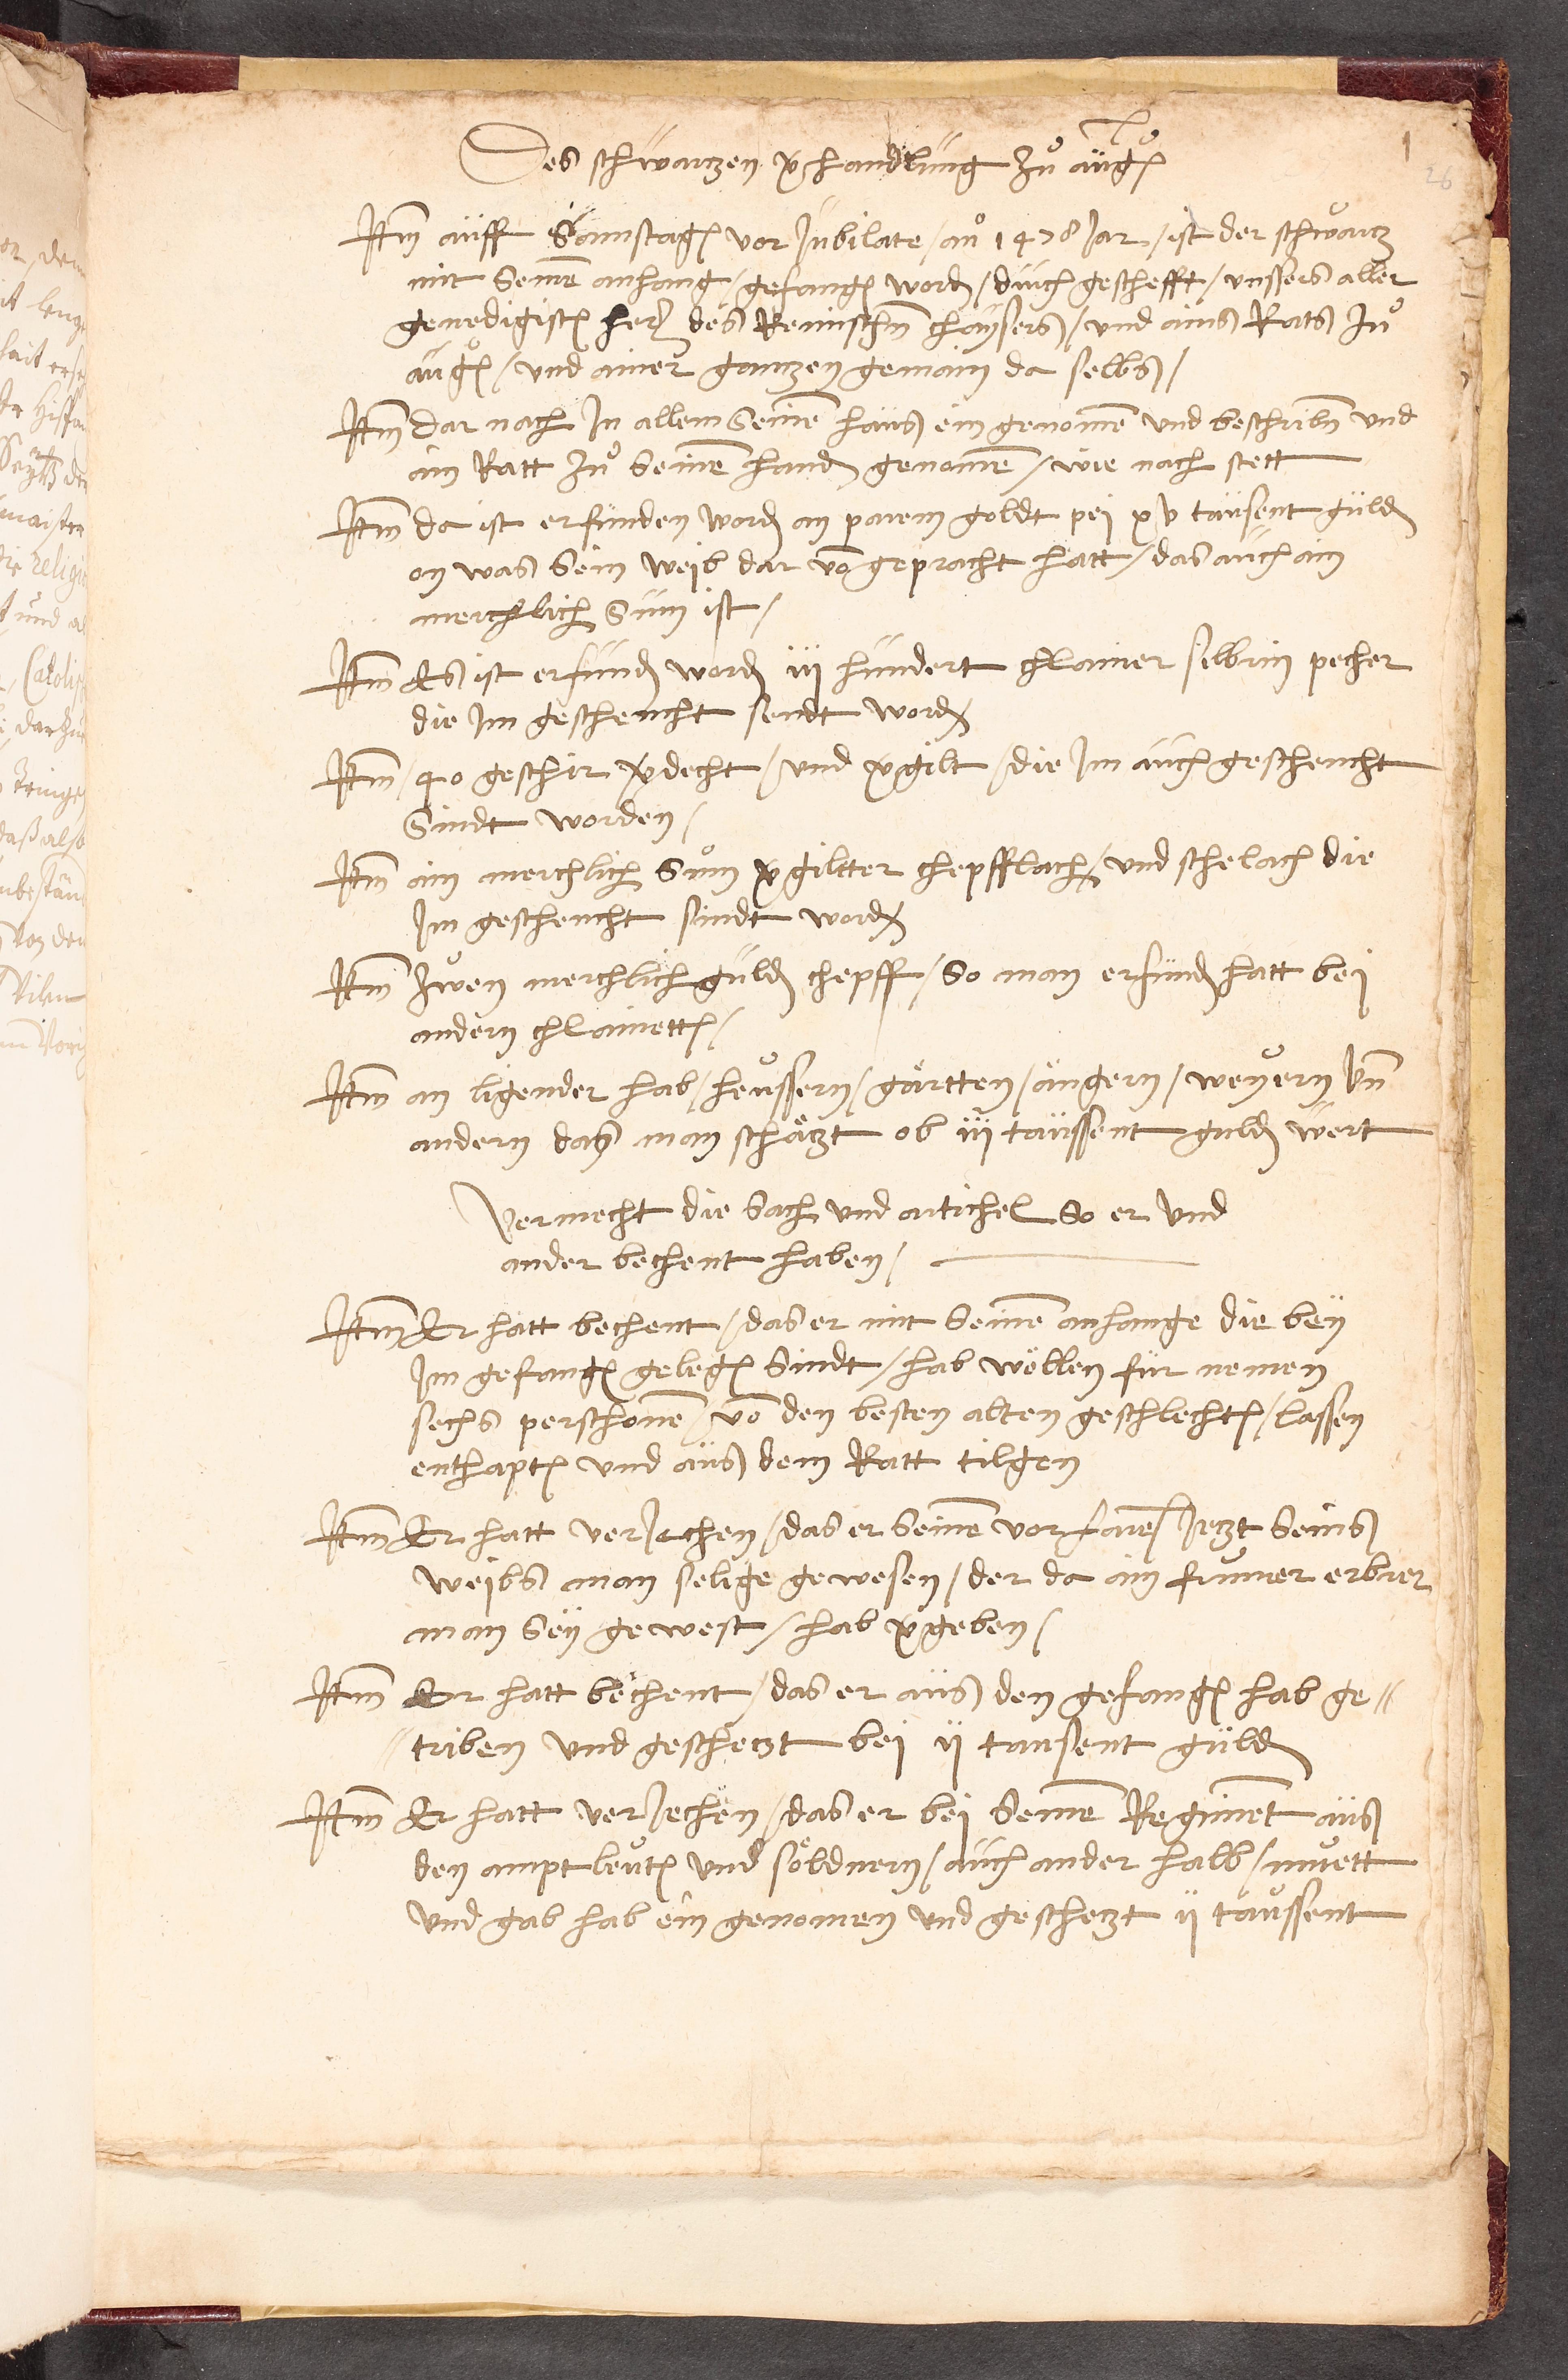 1
26
Des schwartzen vhandlung zů aůgs
Itm auff Samstags vor Jubilate / ano 1478 Jar / ist der schwartz
mit Seinē anhang / gefangn word / durch geschefft / unsers aller
genedigistn hern des Remischn chaysers / und ains Rats zů
augs / und ainer gantzen gemain da selbs /
Itm dar nach In allem Seinē haüs ein genomē und beschribn und
ain Ratt zů Seinē hand genomē / wie nach stett
Itm da ist erfunden word an parem goldt pei xv tausent guld
on was Sein weib dar vō gepracht hatt / das auch ain
merchlich Sum ist /
Itm Es ist erfund word iij hundert chlainer silbrin pecher
die Im geschencht sendt word
Itm / 40 geschir vdecht / und vgilt / die Im auch geschencht
Sindt worden /
Itm ain merchlich Sum vgiltter chepfflach / und schelach die
Im geschencht sindt word
Itm zwen merchlich guld chepff / So man erfund hatt bei
andern chlainettn /
Itm an ligender hab / heussern / gärtten / ängern / weyern vn
andern das man schätzt ob iij taussent guld wert
Vermecht die Sach und artichel So er und
ander bechent haben /
Itm Er hatt bechent / das er mit Seinē anhange die bey
Im gefangn gelegn Sindt / hab wöllen für nemen
sechs perschonē / vō den besten alten geschlechtn / lassen
enthaptn und aüs dem Ratt tilgen
Itm Er hatt verJechen / das er Seinē vorfarn Jetzt Seins
weibs man selige gewesen / der da ain frumer erbrer
man Sey gewest / hab vgeben /
Itm Er hatt bechent / das er aüs den gefangn hab ge//
//triben und geschetzt bei ij tausent guld
Itm Er hatt verJechen / das er bei Seinē Regimēt aüs
den amptleutn und söldnern / auch ander halb / muett
und gab hab ein genomen und geschetzt ij taussent